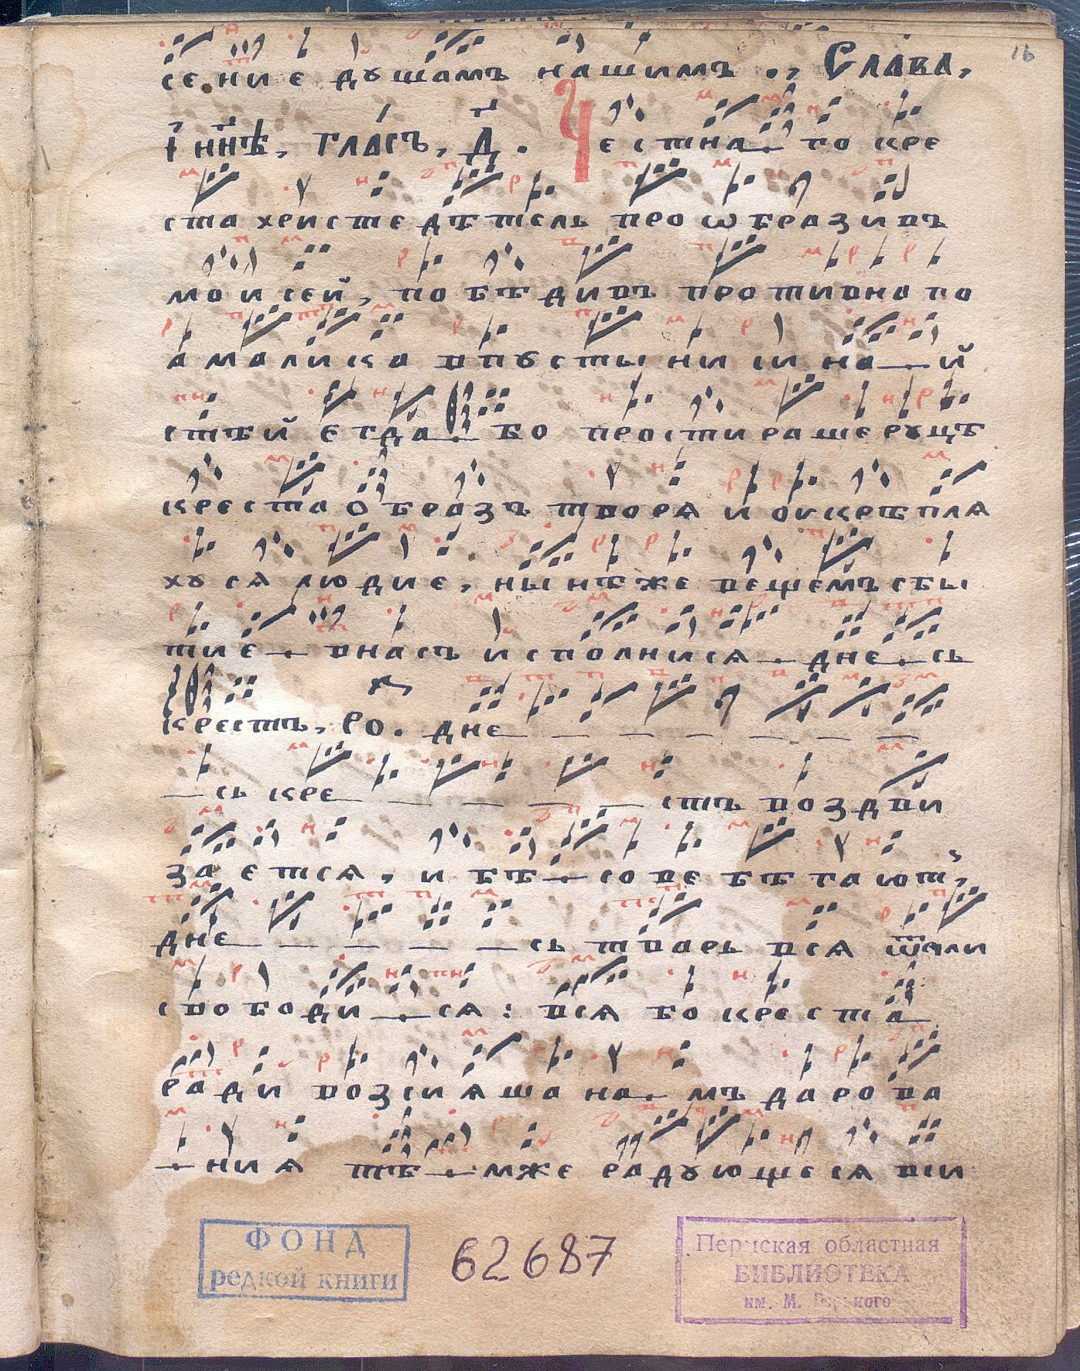 16
сение душамъ нашимъ., Слава,
Ї нн҃ѣ, гласъ, д҃. Честна_го кре
ста христе дѣтель проѡбразивъ
моисей, побѣдивъ противнаго
амалика впустыни сина_й
стѣй егда_бо простираше руцѣ
креста образъ творя и оукрѣпля
хуся людие, нынѣже вещемъ сбы
тие_внасъ исполнися_дне_сь
крестъ, Ро. дне_ _ _ _ _ _ _
_сь кре_ _ _ _ _стъ воздви
зается, и бѣ_сове бѣгают,
дне_ _ _ _ _ _сь тварь вся ѿтли
свободи_ся: вся бо креста_
ради возсияша на_мъ дарова
_ния тѣ_мже радующеся вси
ФОНД
редкой книги
62687
Пермская областная
БИБЛИОТЕКА
им. М. Горького